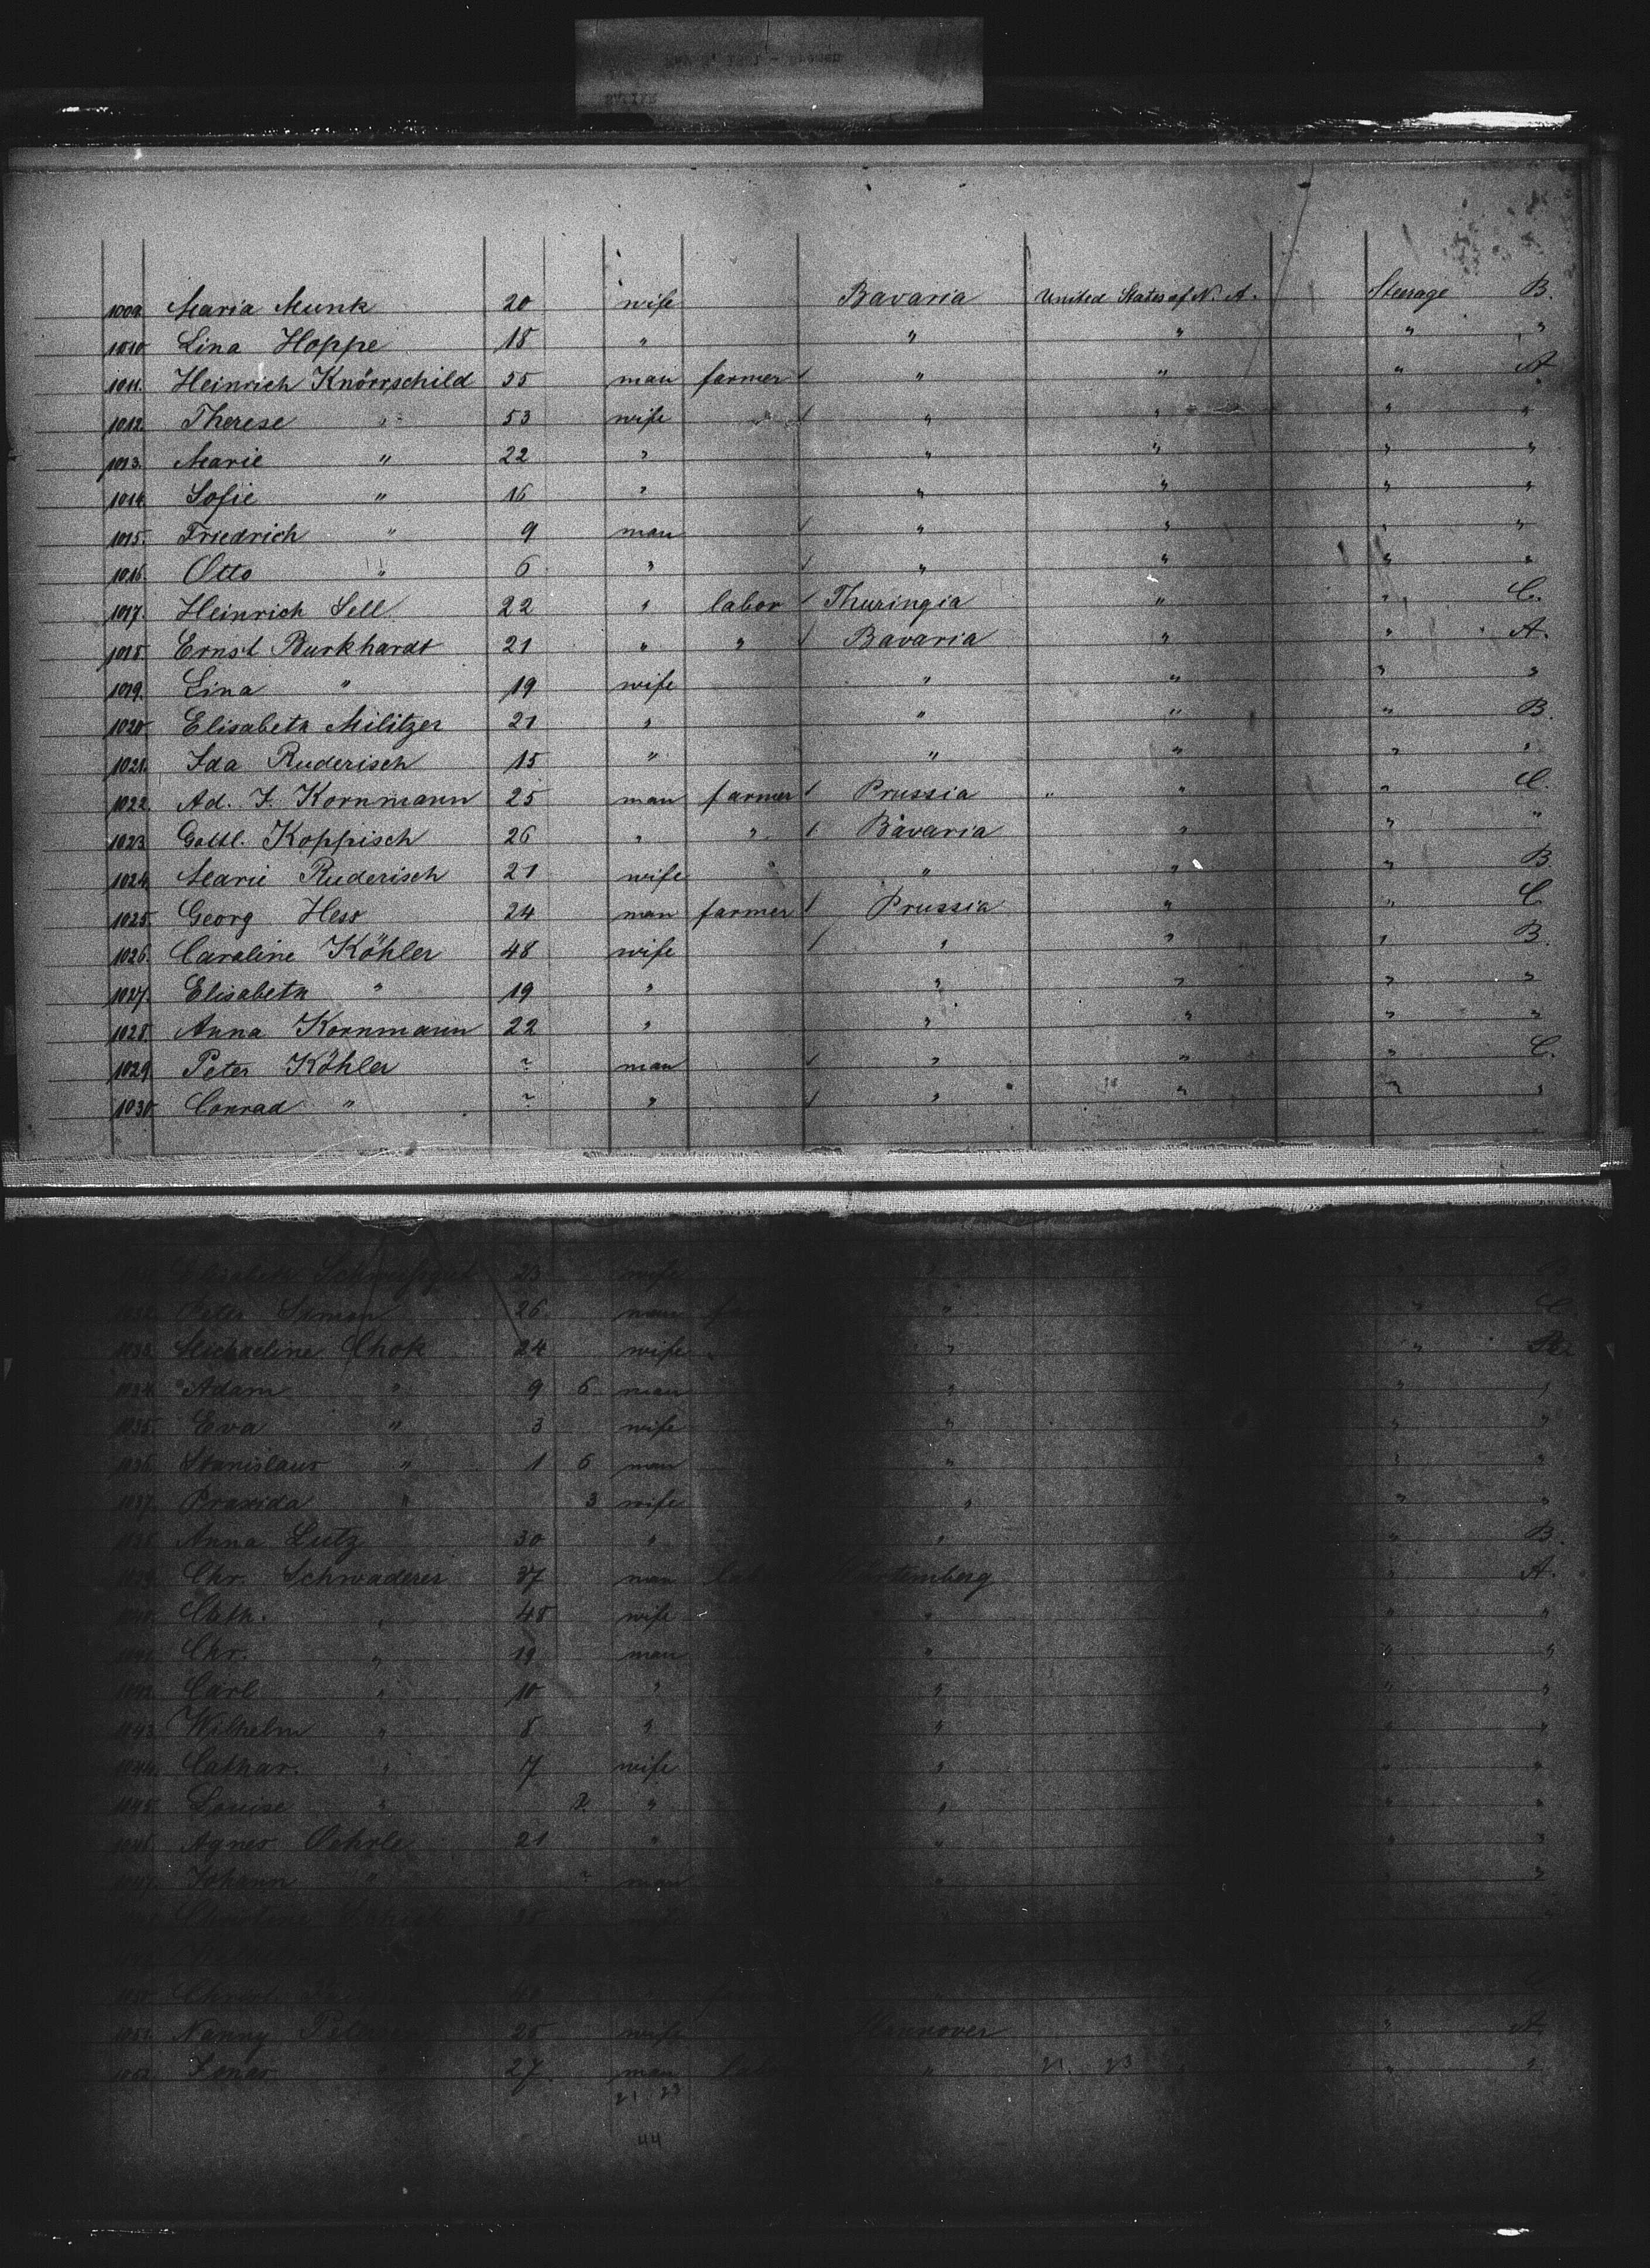 1009. Maria Munk 20 wife Bavaria United States of N. A. Steerage B.
1010. Lina Hoppe 18 " " " " "
1011. Heinrich Knörrschild 55 man farmer / " " " A
1012. Therese " 53 wife " / " " " "
1013. Marie " 22 " " " " "
1014. Sofie " 16 " " " " "
1015. Friedrich " 9 man / " " " "
1016. Otto " 6 " / " " " "
1017. Heinrich Sell 22 " labor / Thuringia " " C.
1018. Ernst Burkhardt 21 " " / Bavaria " " A.
1019. Lina " 19 wife " " " "
1020. Elisabeth Militzer 21 " " " " B.
1021. Ida Ruderisch 15 " " " " "
1022. Ad. F. Kornmann 25 man farmer / Prussia " " " C.
1023. Gottl. Koppisch 26 " " / Bavaria " " "
1024. Marie Ruderisch 21 wife " " " B
1025. Georg Hess 24 man farmer / Prussia " " C
1026. Caroline Köhler 48 wife / " " " B.
1027. Elisabeth " 19 " " " " "
1028. Anna Kornmann 22 " " " " "
1029. Peter Köhler ~ man / " " " C.
1030. Conrad " ~ " / " " " "
Elisabeth 23 wife
1032. Peter Simon 26 man " " C
1033. Michaeline Chok 24 wife " "
1034. Adam " 9 6 man " " "
1035. Eva " 3 wife " " "
1036. Stanislaus " 1 6 man " " "
1037. Praxida " 3 wife " " "
1038. Anna Lutz 30 " " " B.
1039. Chr. Schwaderer 37 man " A.
1040. Cath. " 48 wife " " "
1041. Chr. " 19 man " " "
1042. Carl " 10 " " " "
1043. Wilhelm " 8 " " " "
1044. Cathar. " 7 wife " " "
1045. Louise " 2 " " " "
1046. Agnes Oehrle 21 " " " "
1047. Johann " ~ man " " "
1050. Christ.
1051. Nanny 25 wife Hannover " A
1052. 27 man " 21. 23 " "
21. 23
44